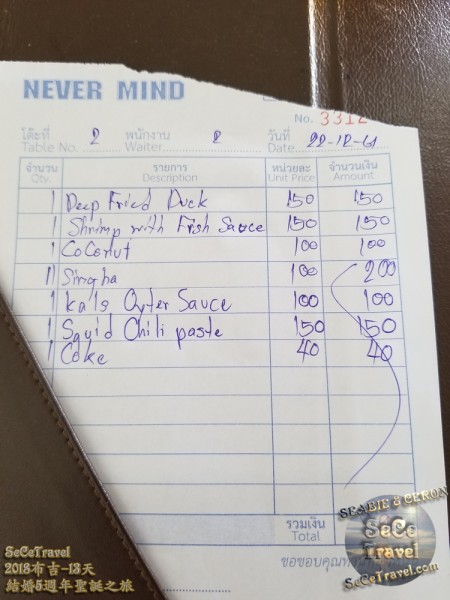 NEVER MIND
No. 3312
โต๊ะที่ 2 พนักงาน 2 วันที่ 22-12-61
Table No. Waiter Date
จำนวน รายการ หน่วยละ จำนวนเงิน
Qty. Description Unit Price Amount
1 Deep Fried Duck 150 150
1 Shrimp with Fish Sauce 150 150
1 Coconut 100 100
11 Singha 100 200
1 Kale Oyter Sauce 100 100
1 Squid Chili paste 150 150
1 Coke 40 40
รวมเงิน
Total
ขอขอบคุณ
SEABIE & CERON
SeCe
Travel
SeCeTravel.com
SeCeTravel
2018布吉-13天
結婚5週年聖誕之旅